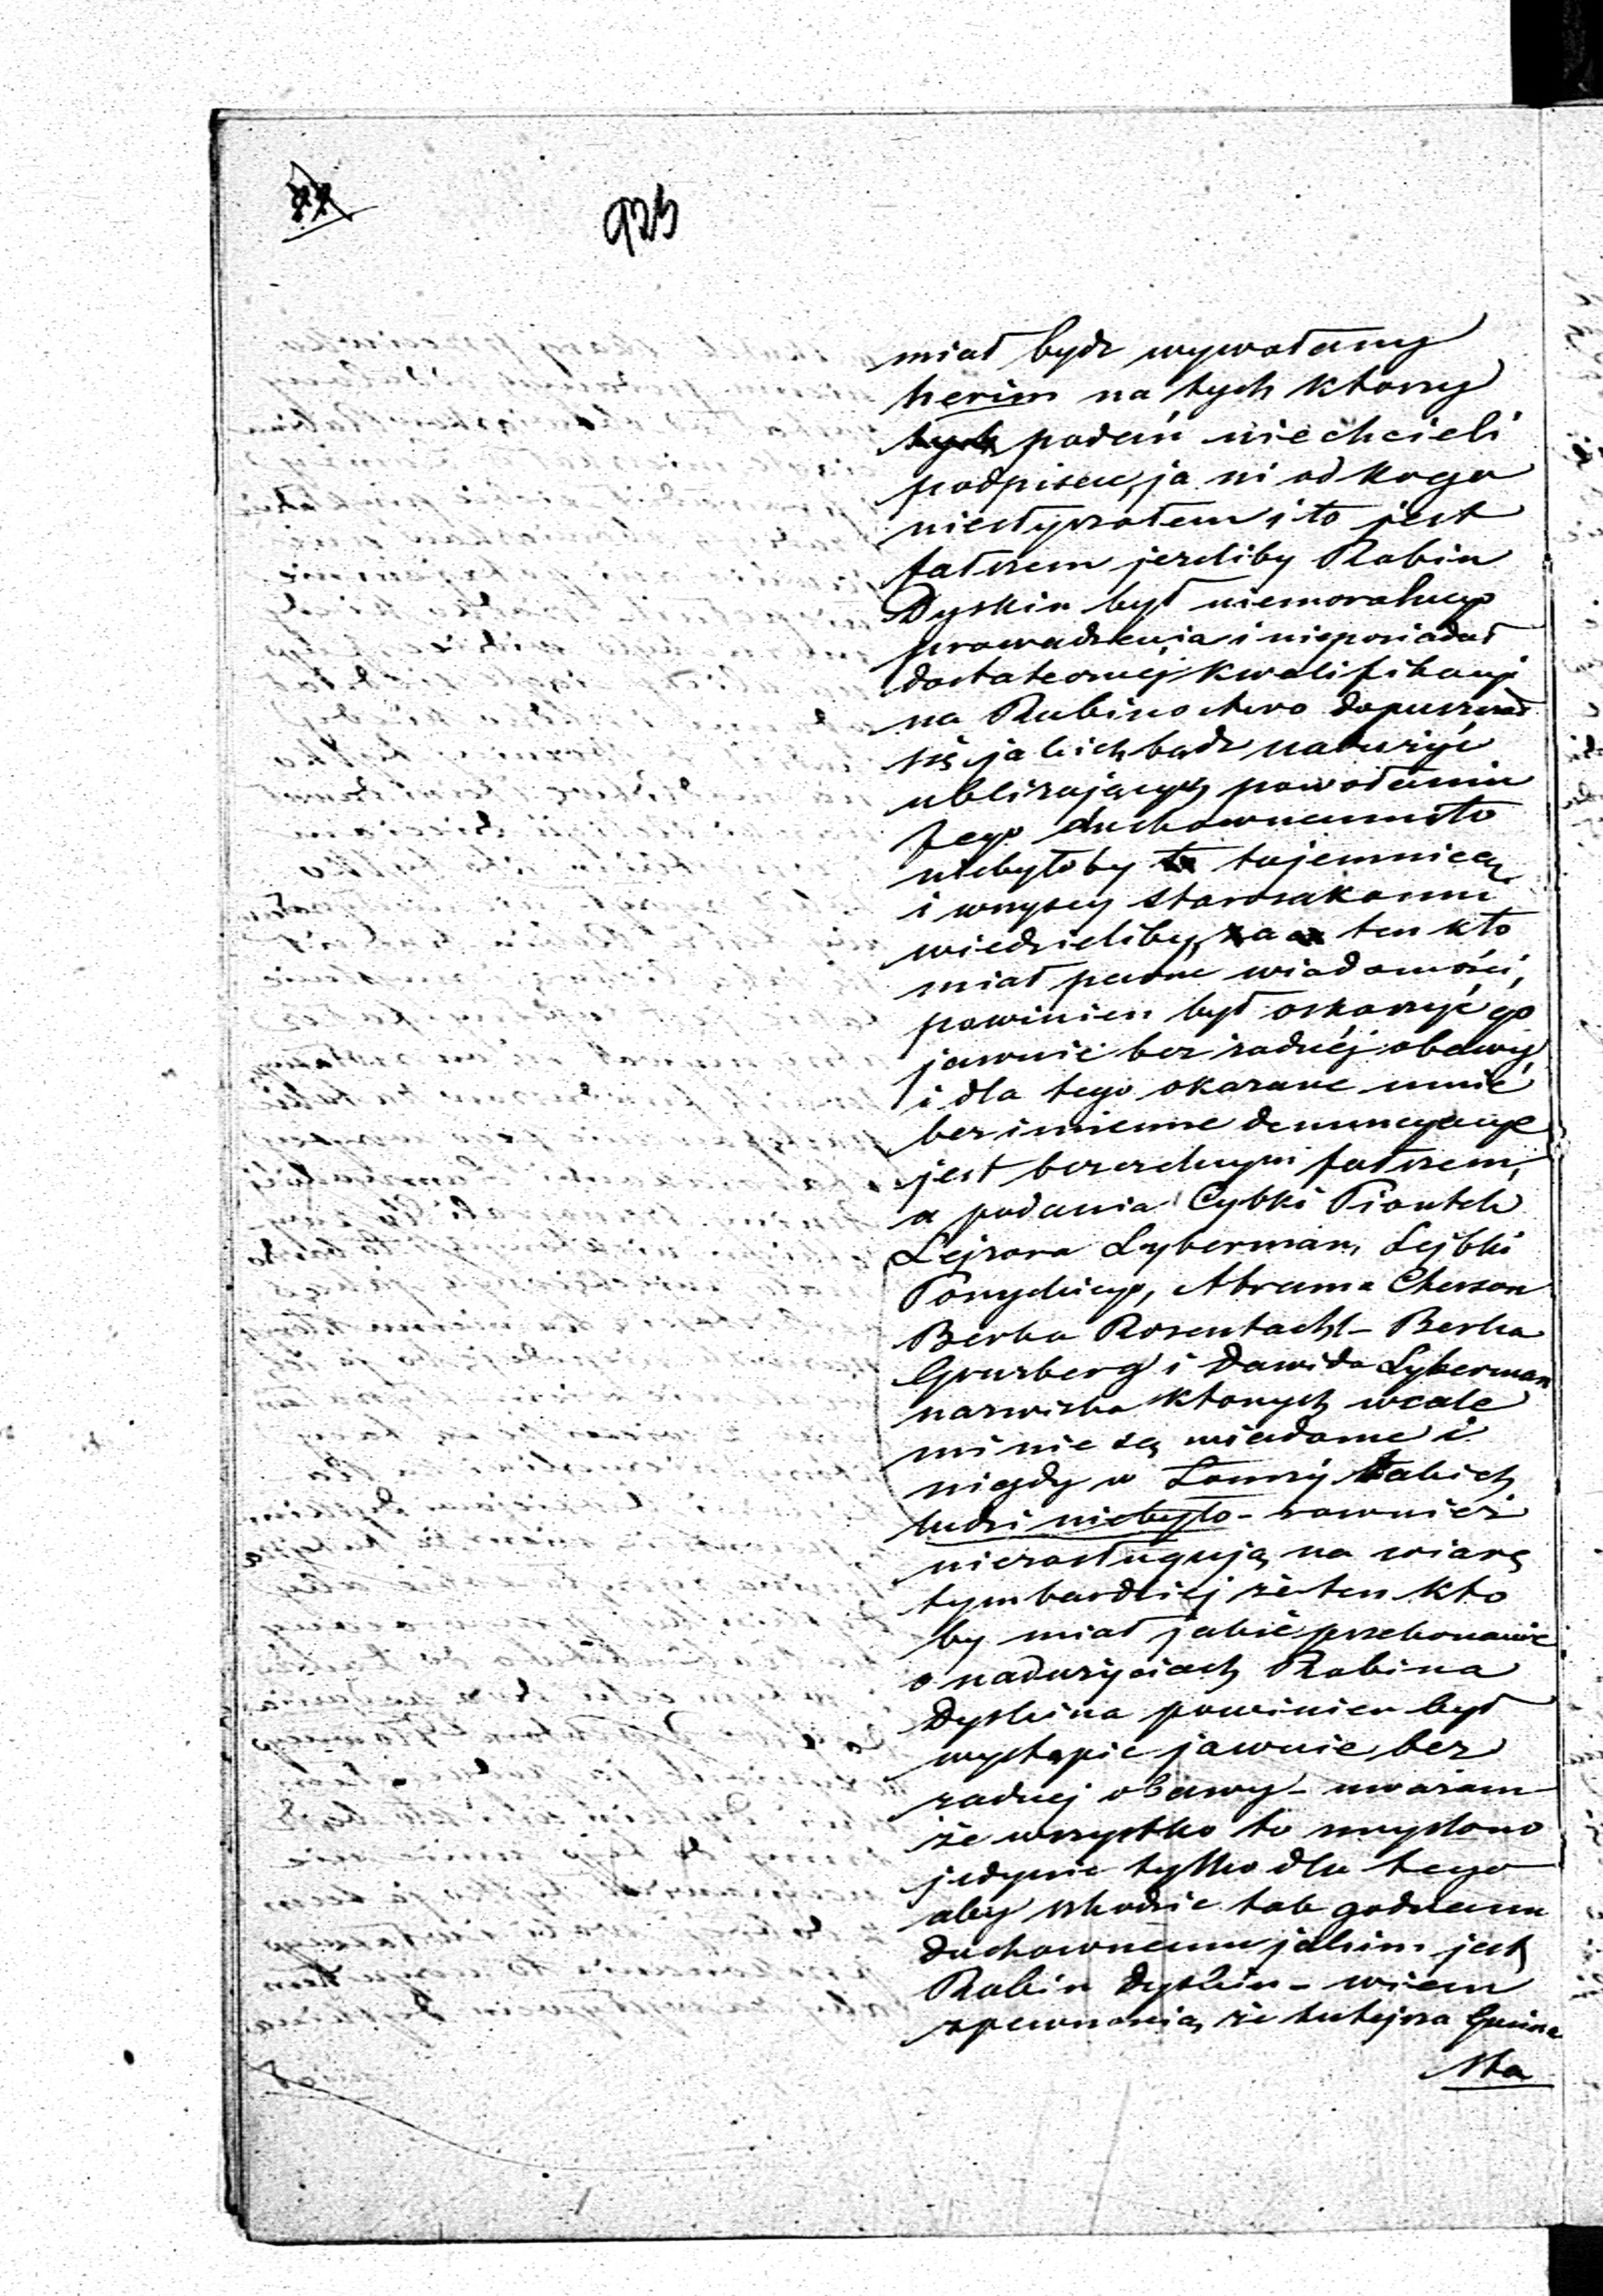 923
miał bydz wywołany
herim na tych ktorzy
tych podań niechcieli
podpisać, ja ni od kogo
niesłyszałem i to jest
fałszem jezeliby Rabin
Dyskin był niemoralnego
prowadzenia i nieposiadał
dostatecznej kwalifikacyi
na Rabinostwo dopuszczał
się jakich bądz nadużyć
ubliżających powołaniu
Jego duchownemu to
niebyłoby to tajemnicą
i wszyscy starozakonni
wiedzieliby, za ten kto
miał pewne wiadomości,
powinien był oskarzyć go
jawnie bez żadnéj obawy
i dla tego okazane mnie
bezimienne denuncyacye
jest bezczelnym fałszem,
a podania Cybki Piontek
Lejzora Lyberman, Lejbki
Abrama Cherson
Berka Rosentachl - Berka
Grurberg i Dawida Lyberman
nazwiska ktorych wcale
mi nie są wiadome i
nigdy w Łomży takich
ludzi niebyło - rownież
niezasługują na wiarę
tymbardziej że ten kto
by miał jakie przekonanie
o nadużyciach Rabina
Dyskina powinien był
wystąpic jawnie bez
zadnej obawy - uważam
że wszystko to zmyslono
jedynie tylko dla tego
aby szkodzic tak godnemu
duchownemu jakim jest
Rabin Dyskin - wiem
zpewnością, że tutejsza Gmina
Sta